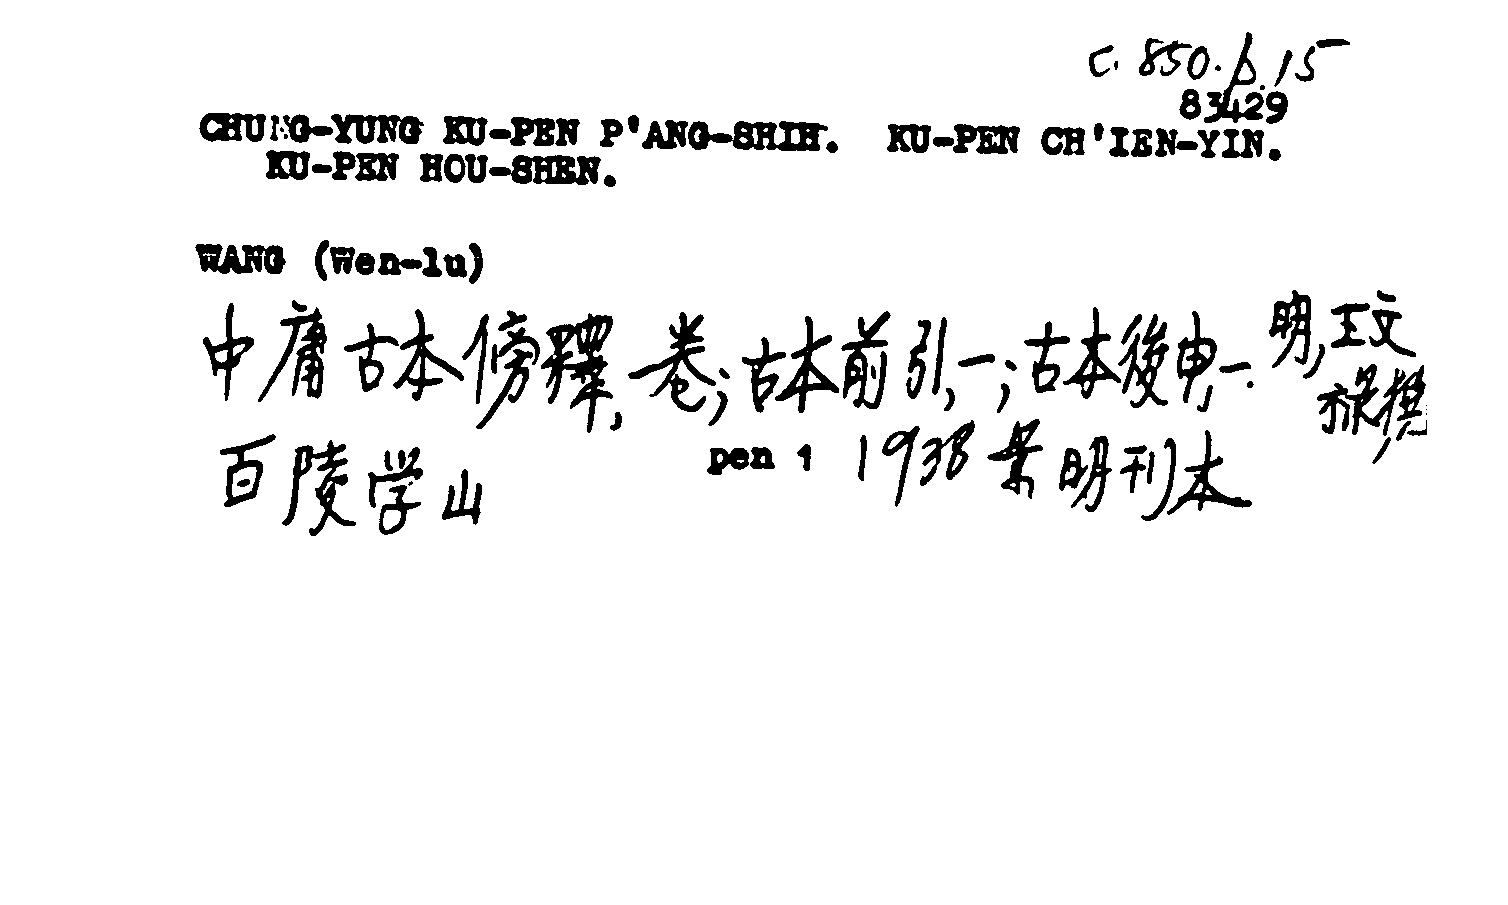 c. 850. b. 15
83429
CHUNG-YUNG KU-PEN P'ANG-SHIH. KU-PEN CH'IEN-YIN.
KU-PEN HOU-SHEN.
WANG (Wen-lu)
中庸古本傍釋, 一卷; 古本前引, 一; 古本後申, 一. 明, 王文
祿撰
百陵学山 pen 1 1938 景明刊本